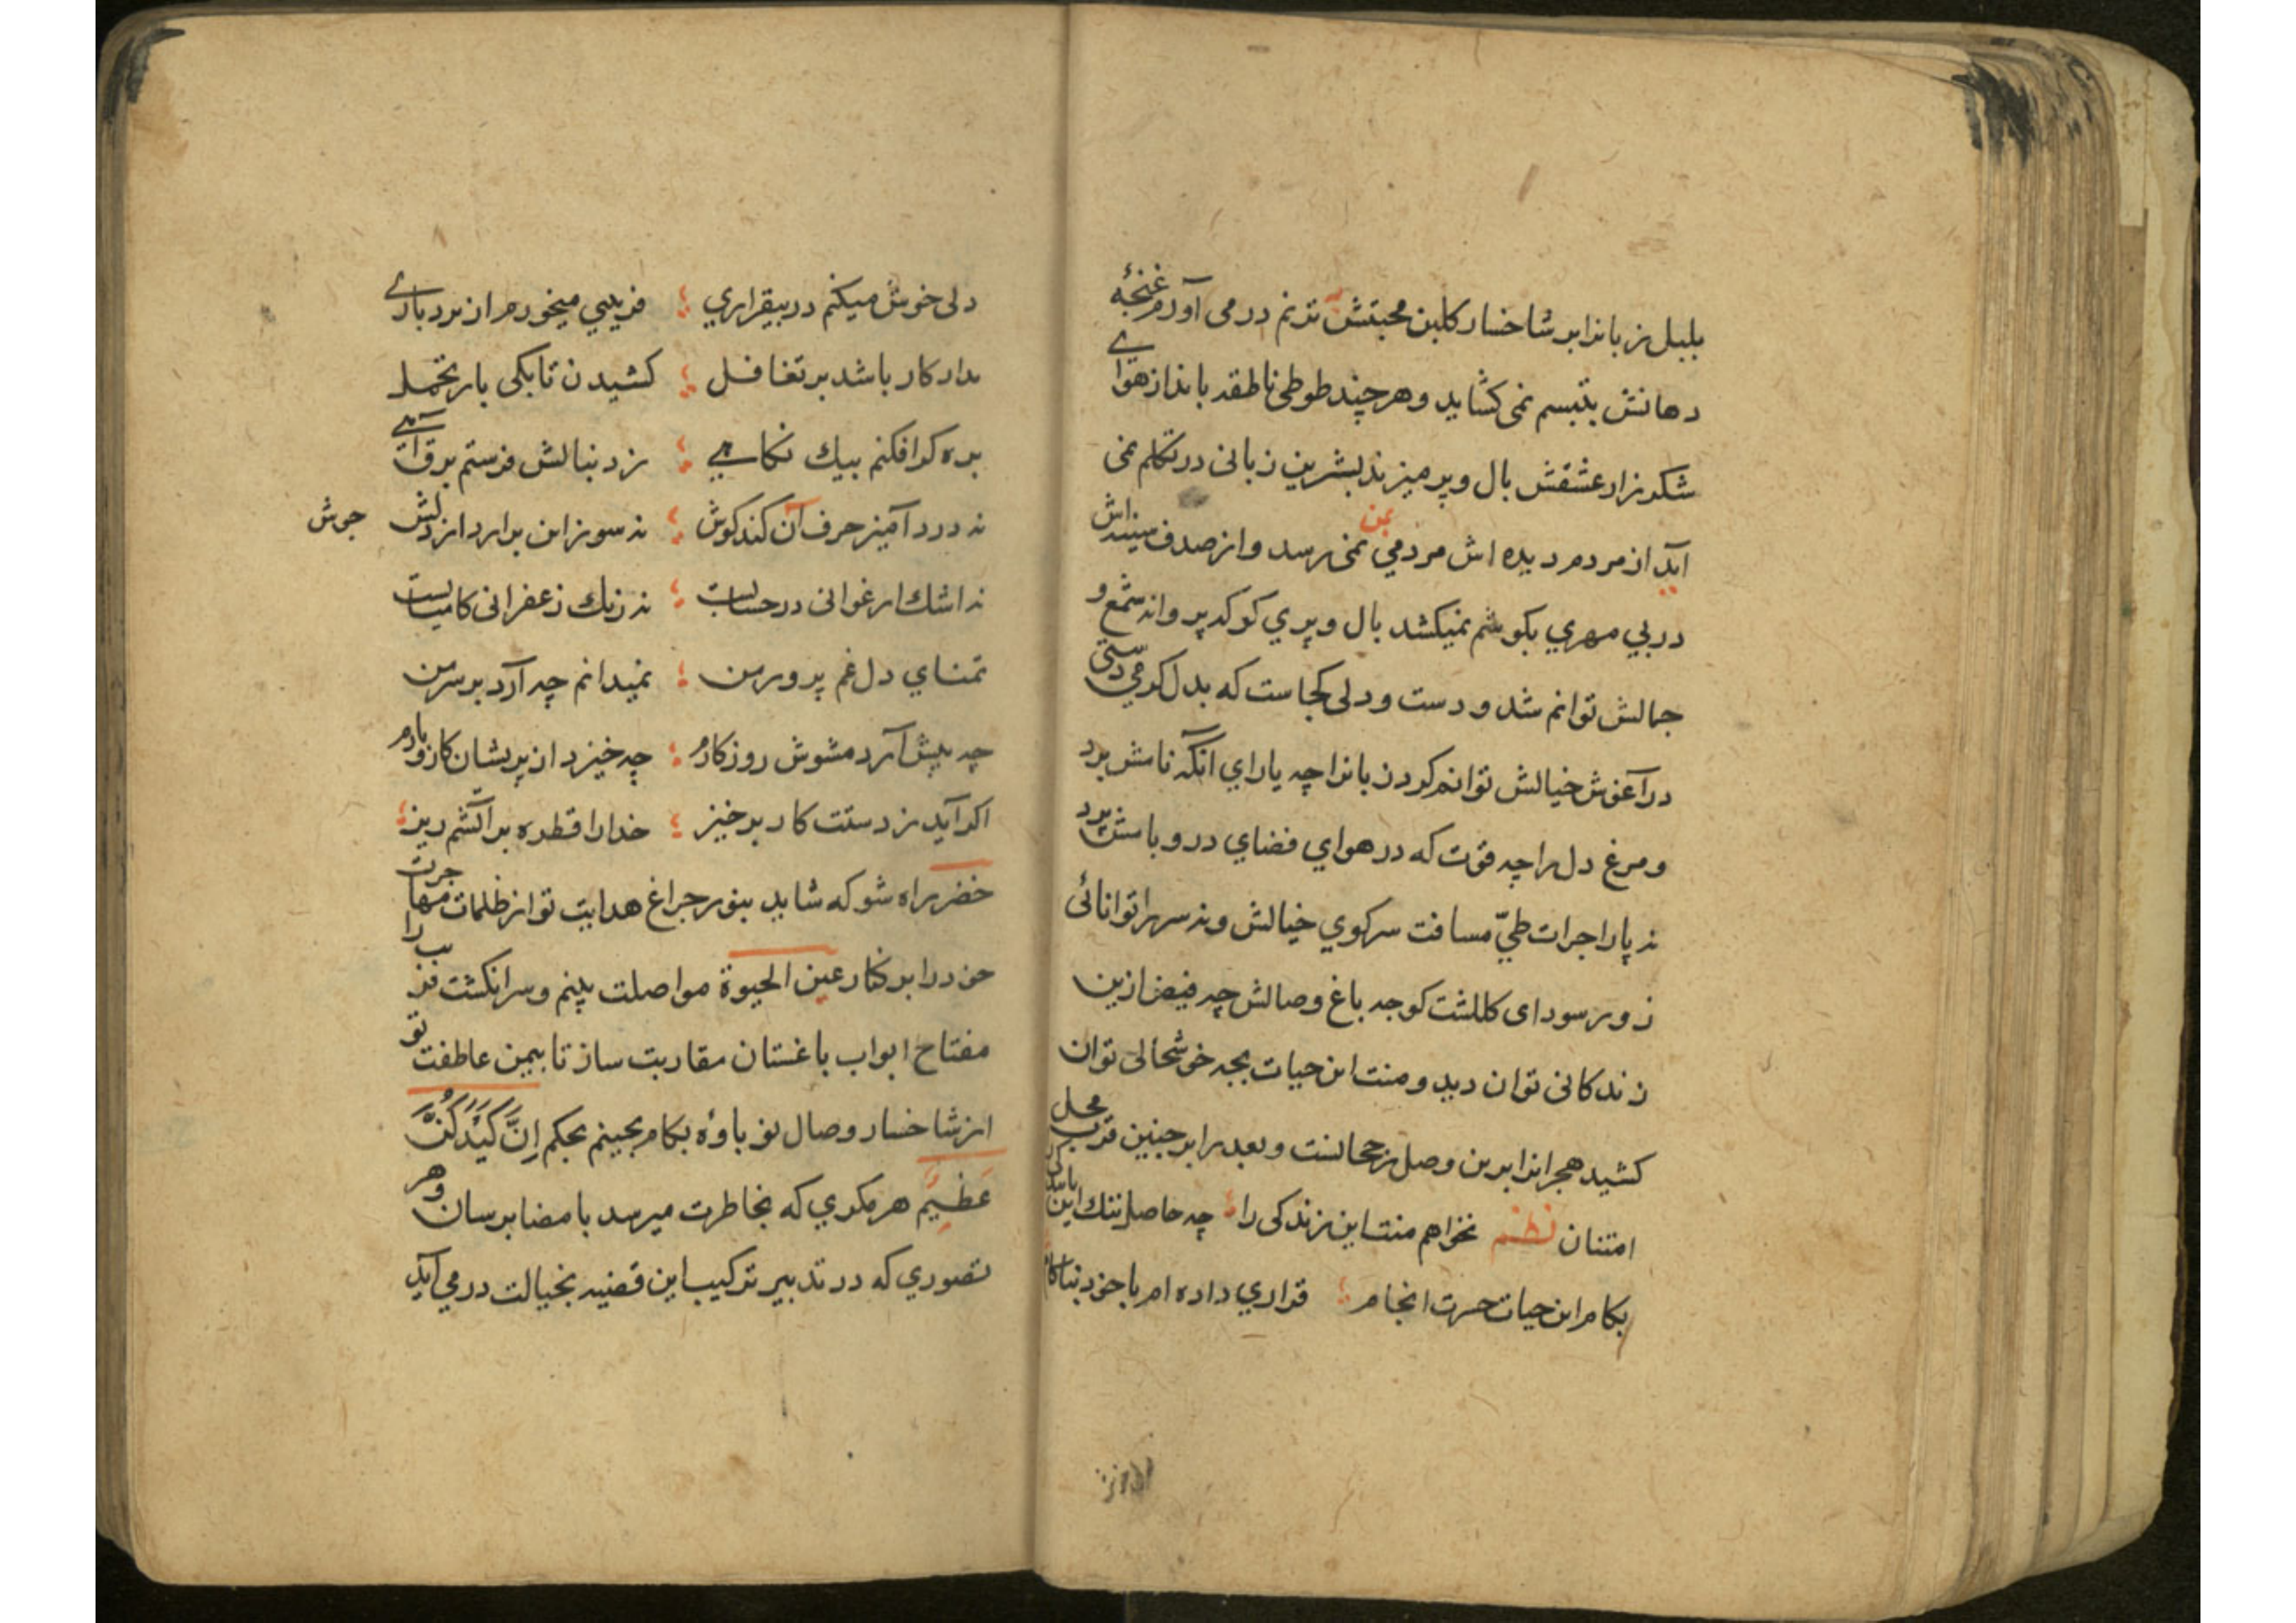 بلبل زبانرا بر شاخسار کلبن محبتش بترنم درمی آورم غنجهٔ
دهانش بتبسم نمی کشاید و هرچند طوطی ناطقه بانداز هوای
شکرزار عشقش بال و پر میزند بشیرین زبانی در تکلم نمی
آید از مردم دیده اش مردمی بمن نمی رسد و از صدف سینه اش
در بي مهري بکوشم نمیکشد بال و پري کو که پروانه شمع و
جمالش توانم شد و دست و دلی کجاست که بدل کرمي دستی
در آغوش خیالش توانم کردن بانرا چه یاراي انکه نامش برد
و مرغ دل را چه قوت که در هواي فضاي در و بامش پرد
نه پارا جرات طيّ مسافت سرکوي خیالش و نه سر را توانائی
زور سودای کلکشت کوجه باغ وصالش چه فیض ازین
زندکانی توان دید و منت این حیات بجه خوشحالی توان
کشید هجر انرا برین وصل رجحانست و بعد را بر جنین قرب محل
امتنان نظم نخواهم منت این زندکی را چه حاصل ننك این
بکام این حیات حسرت انجام قراري داده ام با خود بناکام
دلی خوش میکنم در بیقراري فریبي میخورم از بردباری
مدار کار باشد بر تغافل کشیدن تا بکی بار تحمل
بره کر افکنم بیك نکاهي زد نبالش فرستم برق آهی
نه درد آمیز حرف آن کند کوش نه سوز این برارد از دلش جوش
نه اشك ارغوانی در حسابست نه رنك زعفرانی کامیابست
تمناي دل غم پرور من نمیدانم چه آرد بر سر من
چه پیش آرد مشوش روزکارم چه خیزد از پریشان کار و بارم
اکر آید ز دستت کار برخیز خدارا قطره بر آتشم ریز
خضر راه شو که شاید بنور جراغ هدایت تو از ظلمات مهاجرت
خودرا بر کنار عین الحیوة مواصلت بینم و سر انکشت فریب را
مفتاح ابواب باغستان مقاربت ساز تا بیمن عاطفت تو
از شاخسار وصال نو باوۀ بکام بجینم بحکم اِنَّ کَیْدَکُنَّ
عَظیِمٌ هر مکري که بخاطرت میرسد بامضا برسان و هر
تصوري که در تدبیر ترکیب این قضیه بخیالت درمي آید